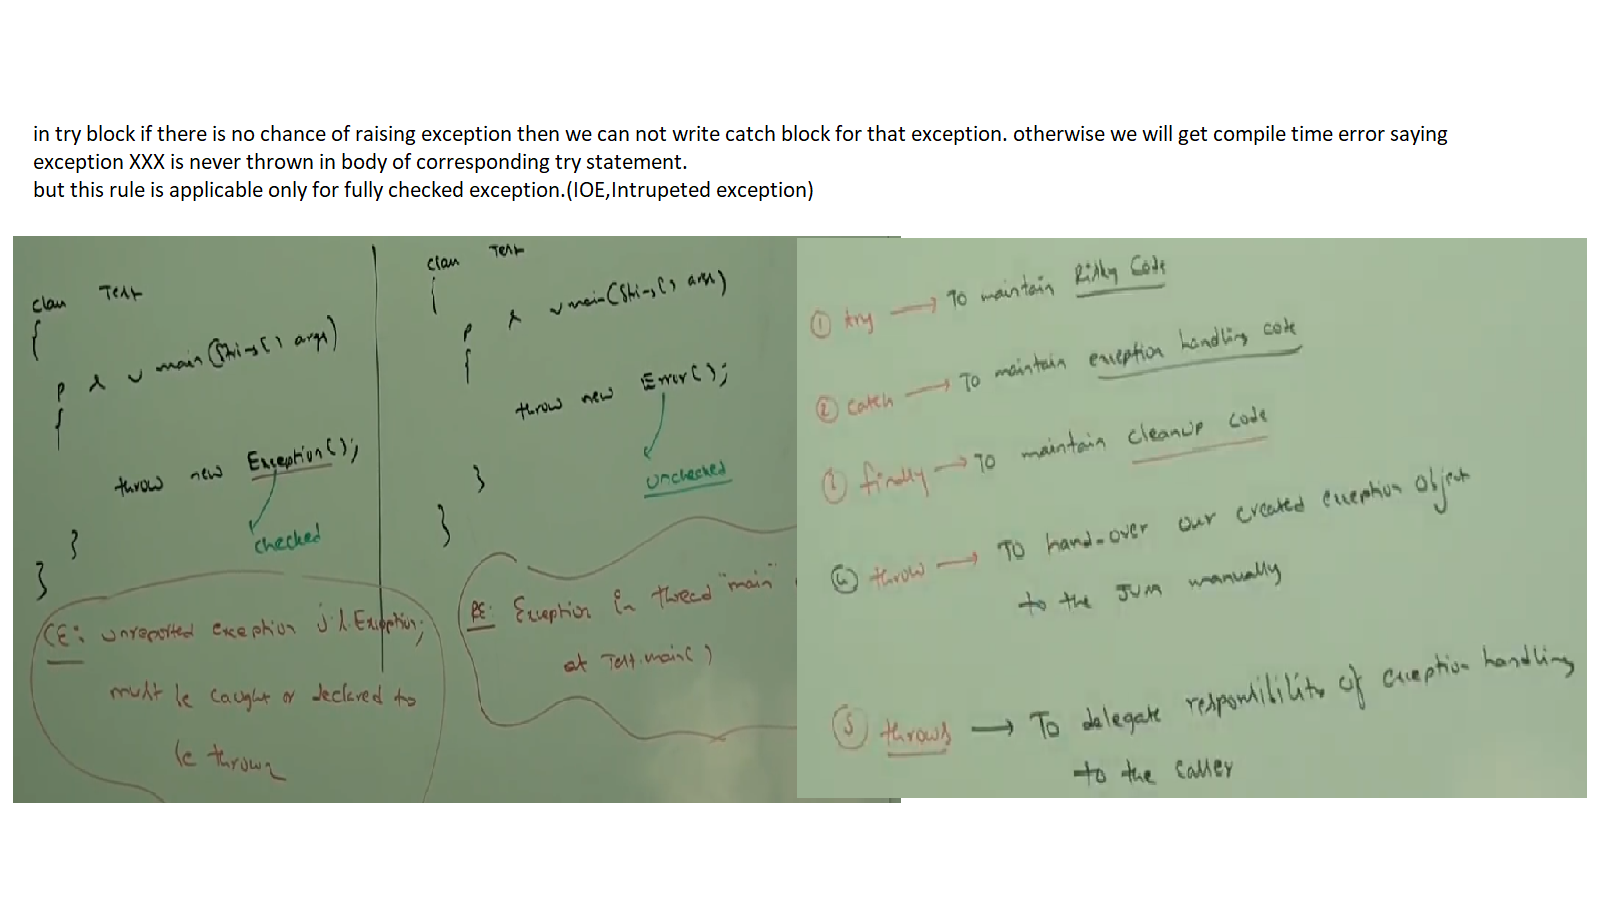 in try block if there is no chance of raising exception then we can not write catch block for that exception. otherwise we will get compile time error saying
exception XXX is never thrown in body of corresponding try statement.
but this rule is applicable only for fully checked exception.(IOE,Intrupeted exception)
class Test
{
p s v main(String[] args)
{
throw new Exception();
checked
}
}
CE: unreported exception j.l.Exception;
must be caught or declared to
be thrown
class Test
{
p s v main(String[] args)
{
throw new Error();
unchecked
}
}
RE: Exception in thread "main"
at Test.main()
① try → To maintain Risky Code
② catch → To maintain exception handling code
③ finally → To maintain cleanup code
④ throw → To hand-over our created exception object
to the JVM manually
⑤ throws → To delegate responsibility of exception handling
to the caller